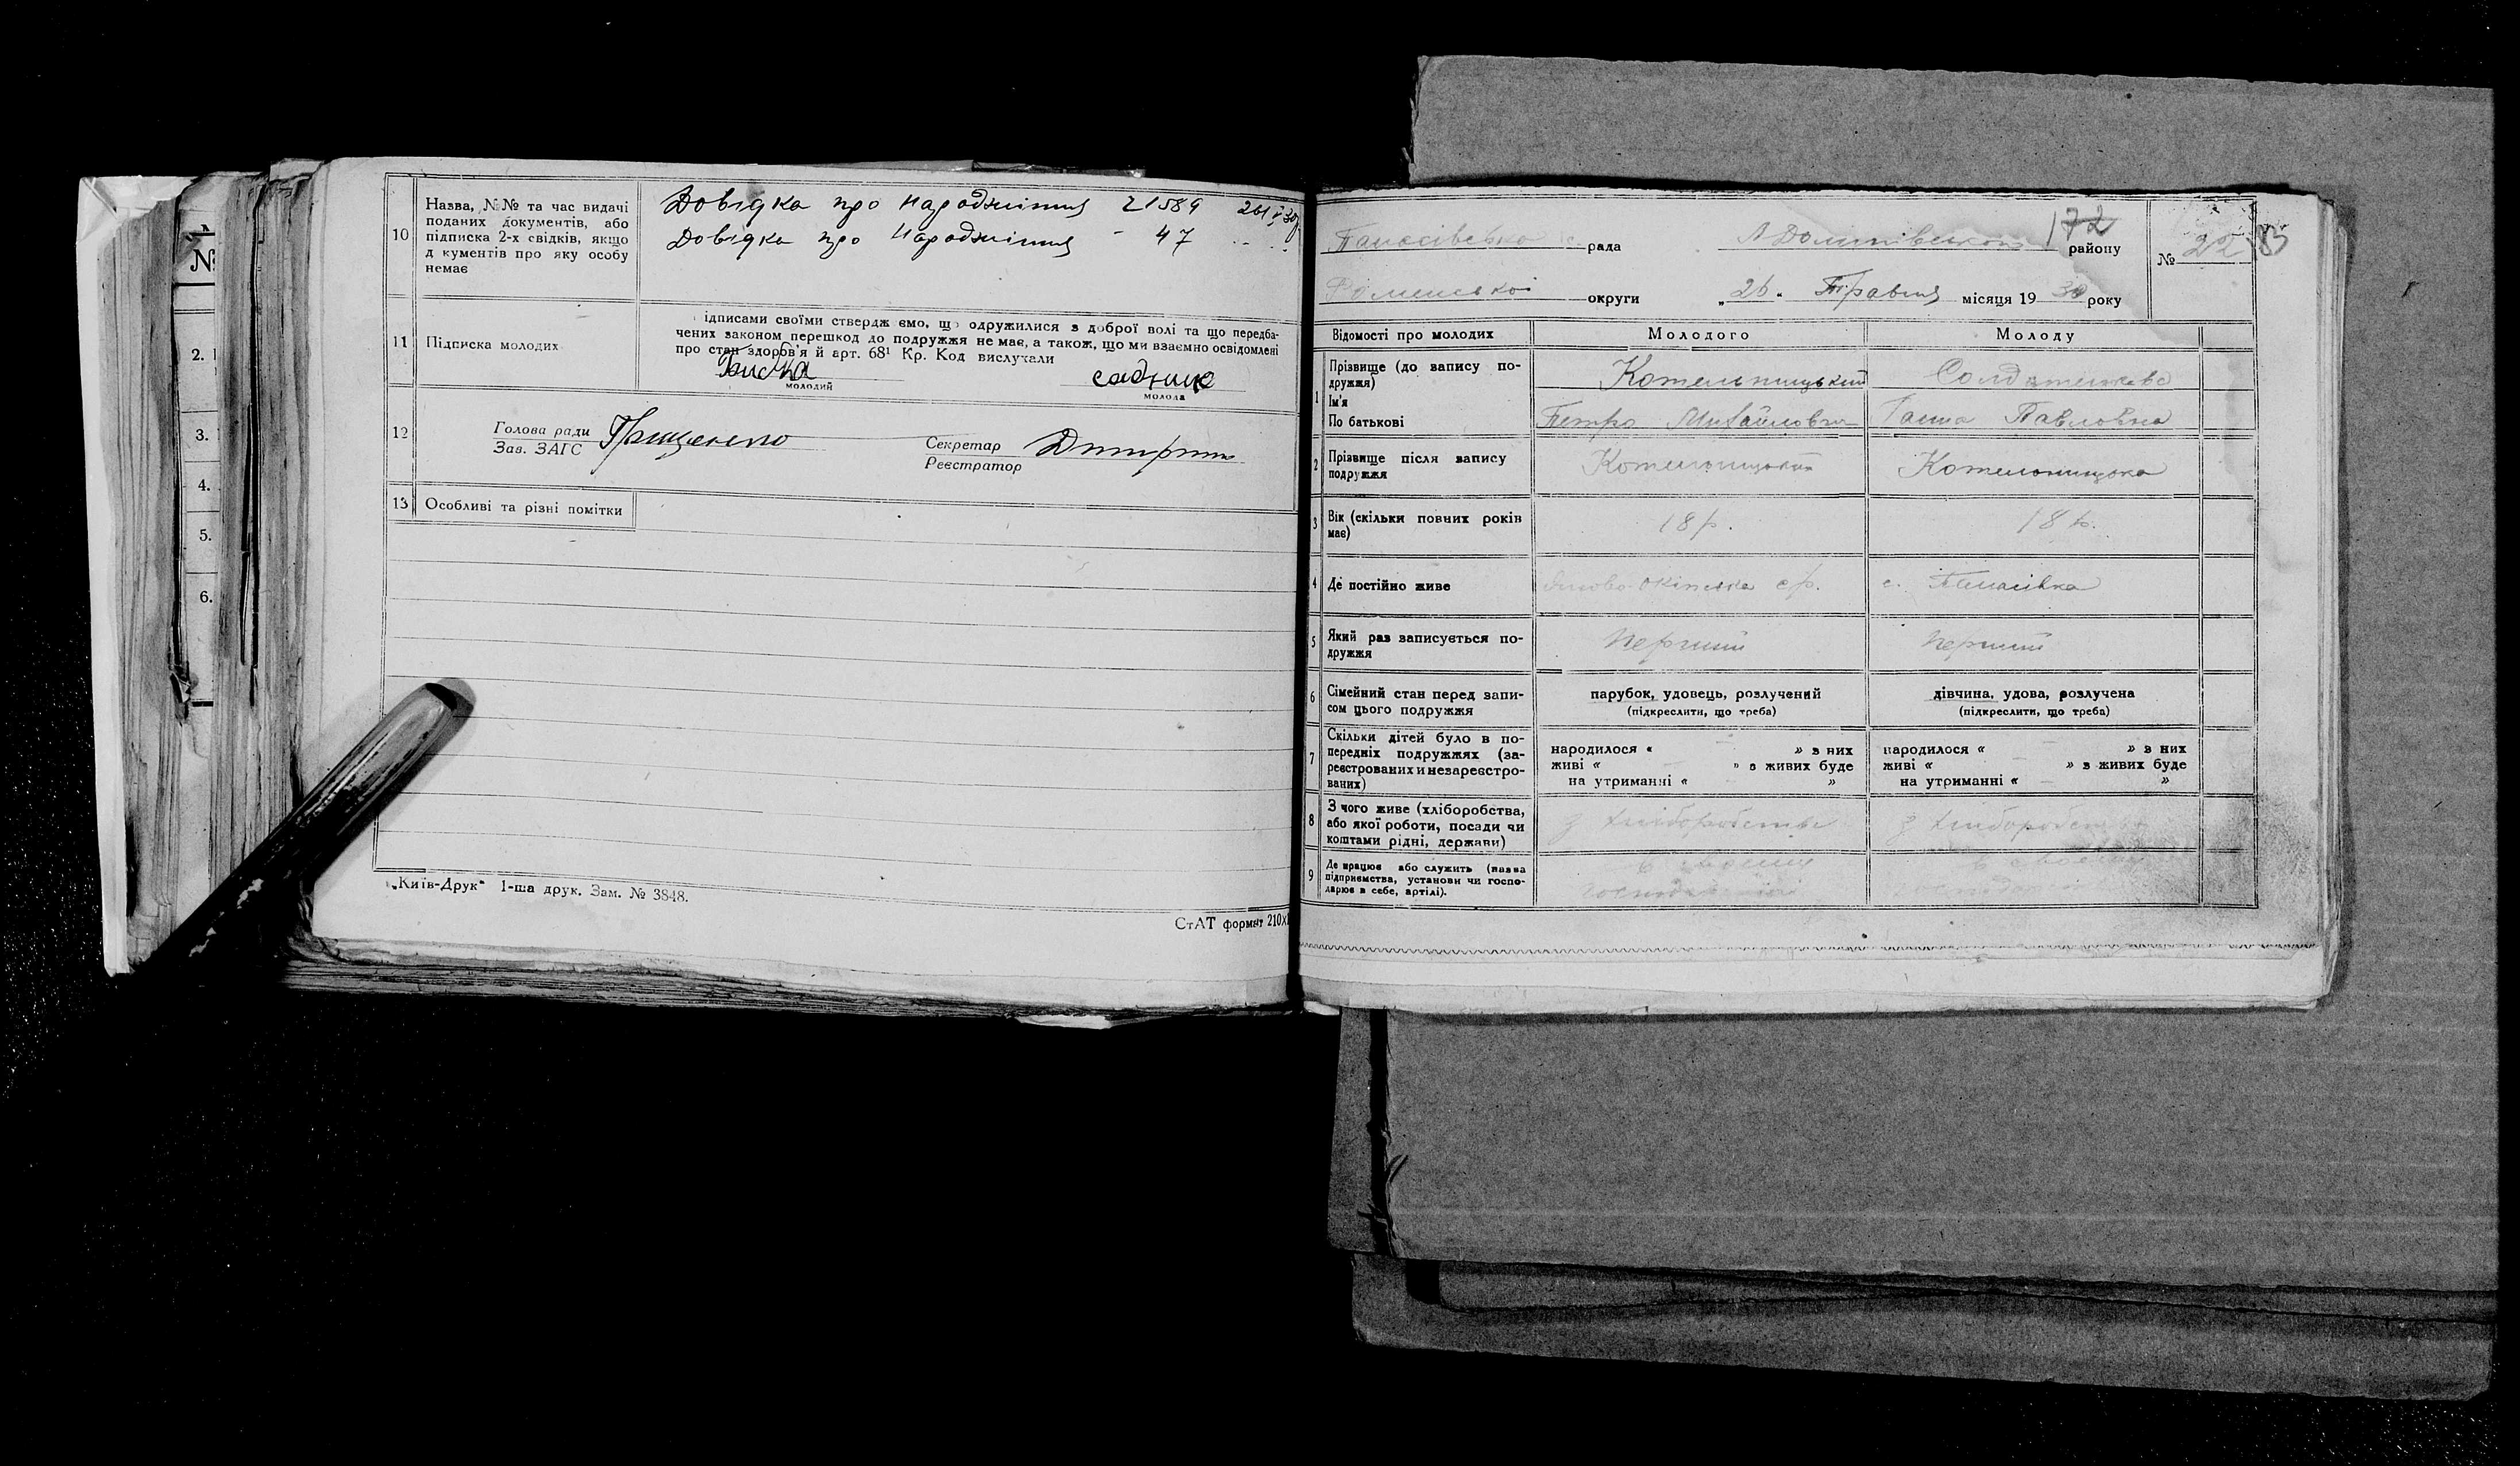 №
2.
3.
4.
5.
6.
10 Назва, №№ та час видачі
поданих документів, або
підписка 2-х свідків, якщо
д кументів про яку особу
немає
Довідка про народження 21589
Довідка про народження - 47
11 Підписка молодих
ідписами своїми ствердж ємо, що одружилися з доброї волі та що передба-
чених законом перешкод до подружжя не має, а також, що ми взаємно освідомлені
про стан здоров'я й арт. 68¹ Кр. Код вислухали
молодий
молода
12 Голова ради Грищенко
Зав. ЗАГС
Секретар
Реєстратор
13 Особливі та різні помітки
„Київ-Друк“ 1-ша друк. Зам. № 3848.
СтАТ формат 210х
Панасівська с. рада
172
району
№ 22
Роменської округи „26„ Травня місяця 1930 року
Відомості про молодих Молодого Молоду
1 Прізвище (до запису по-
дружжя) Котельницький
Ім'я
По батькові Петро Михайлович Ганна Павловна
2 Прізвище після запису
подружжя Котельницький Котельницька
3 Вік (скільки повних років
має) 18 р. 18 р.
4 Де постійно живе с. Панасівка
5 Який раз записується по-
дружжя перший перший
6 Сімейний стан перед запи-
сом цього подружжя
парубок, удовець, розлучений
(підкреслити, що треба)
дівчина, удова, розлучена
(підкреслити, що треба)
7 Скільки дітей було в по-
передніх подружжях (за-
реєстрованих и незареєстро-
ваних)
народилося « » з них
живі « » з живих буде
на утриманні « »
народилося « » з них
живі « » з живих буде
на утриманні « »
8 З чого живе (хліборобства,
або якої роботи, посади чи
коштами рідні, держави)
з хліборобства з хліборобства
9 Де працює або служить (назва
підприємства, установи чи госпо-
дарює в себе, артілі).